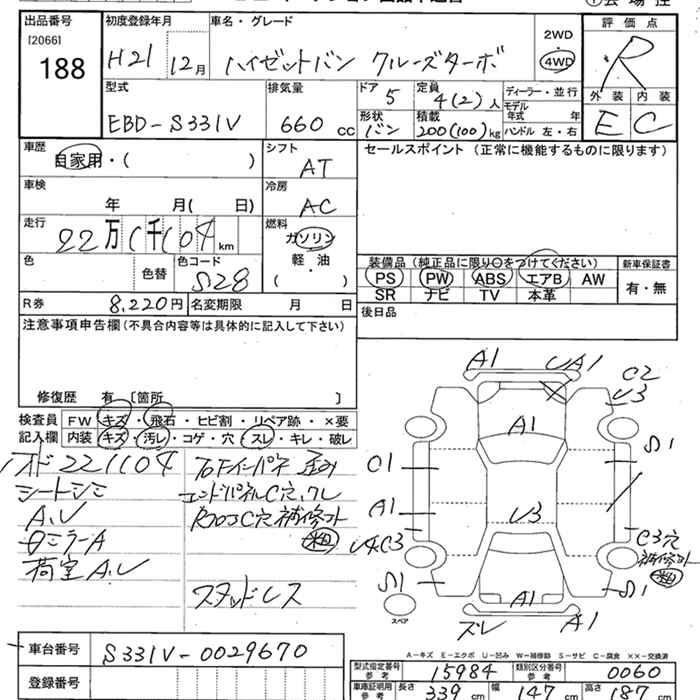 出品番号
[2066]
188
初度登録年月
H21 12月
車名・グレード
ハイゼットバン クルーズターボ
2WD
4WD
評価点
R
外装 内装
E C
型式
EBD-S331V
排気量
660 cc
ドア 5
形状 バン
定員 4(2)人
積載 200(100)kg
ディーラー・並行
モデル年式 年
ハンドル 左・右
車歴
自家用・( )
シフト
AT
セールスポイント (正常に機能するものに限ります)
車検
年 月( 日)
冷房
AC
走行
22万1千104km
燃料
ガソリン
軽・油
( )
色
色替
色コード
S28
装備品 (純正品に限り○をつけてください)
PS PW ABS エアB AW
SR ナビ TV 本革
新車保証書
有・無
R券 8,220円
名変期限 月 日
後日品
注意事項申告欄(不具合内容等は具体的に記入して下さい)
修復歴 有 [箇所 ]
検査員記入欄
FW キズ・飛石・ヒビ割・リペア跡・×要
内装 キズ・汚レ・コゲ・穴・スレ・キレ・破レ
221104
シートシミ
A,U
ロミラーA
荷室A,U
エンドパネルC穴、クレ
C穴 補修コト
粗
スタッドレス
A1
UA1
C2
U3
A1
S1
C1
A1
U3
U4C3
C3穴
補修コト
粗
S1
A1
S1
スペア
ズレ
A1
A-キズ E-エクボ U-凹み W-補修跡 S-サビ C-腐食 ××-交換済
車台番号
S331V-0029670
登録番号
型式指定番号
参考
15984
類別区分番号
参考
0060
車庫証明用
参考
長さ 339cm 幅 147cm 高さ 187cm